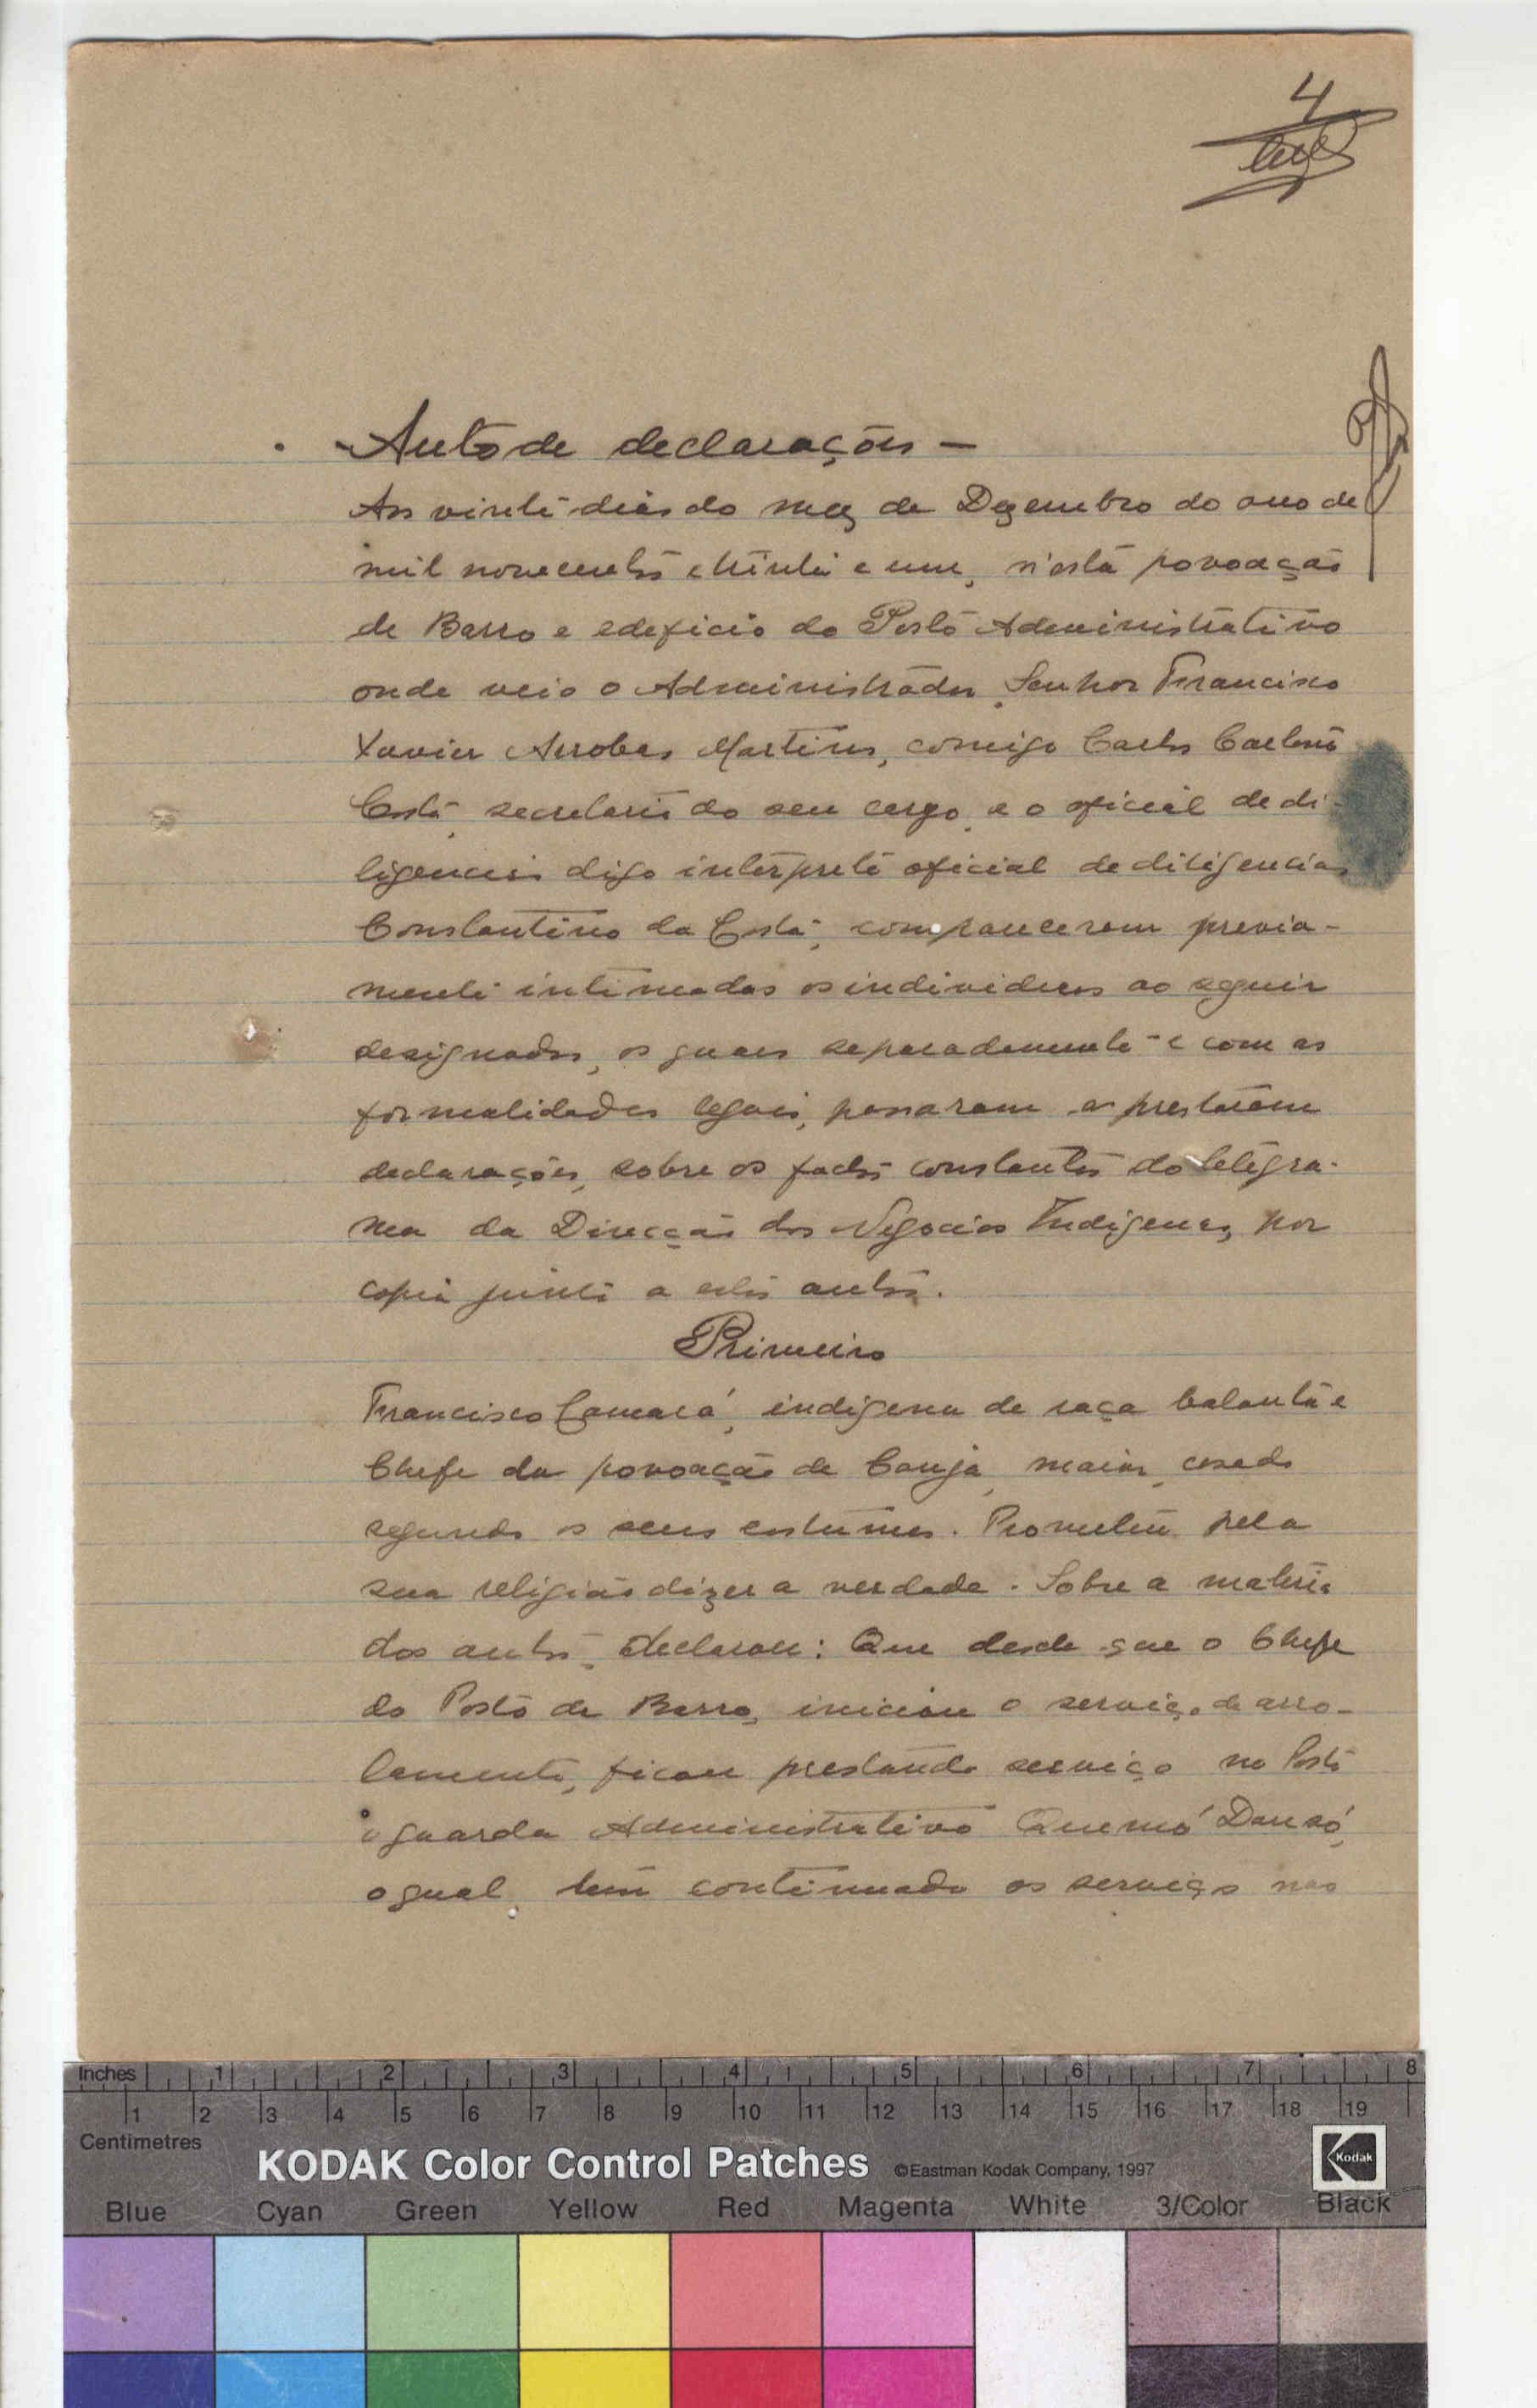 4
- Auto de declarações -
Aos vinte dias do mez de Dezembro do ano de
mil novecentos e trinta e um, n'esta povoação
de Barro e edeficio do Posto Administrativo
onde veio o Administrador, Senhor Francisco
Xavier Arrobas Martins, comigo Carlos
Costa, secretario do seu cargo, e o oficial de di-
ligencias digo interprete oficial de diligencias
Constantino da Costa, compareceram previa-
mente intimados os individuos ao seguir
designados, os quaes separadamente e com as
formalidades legais, passaram a prestarem
declarações, sobre os factos constantes do telegra-
ma da Direcção dos Negocios Indigenas, por
copia junto a estes autos.
Primeiro
Francisco Camará, indigena de raça balanta e
Chefe da povoação de Canja, maior, casado
segundo os seus costumes. Prometeu pela
sua religião dizer a verdade. Sobre a materia
dos autos, declarou: Que desde que o Chefe
do Posto de Barro, iniciou o serviço de arro-
lamento, ficou prestando serviço no Posto
o guarda Administrativo Quemó Dansó,
o qual, tem continuado os serviços nas
Inches 1 2 3 4 5 6 7 8
1 2 3 4 5 6 7 8 9 10 11 12 13 14 15 16 17 18 19
Centimetres
KODAK Color Control Patches ©Eastman Kodak Company, 1997 Kodak
Blue Cyan Green Yellow Red Magenta White 3/Color Black